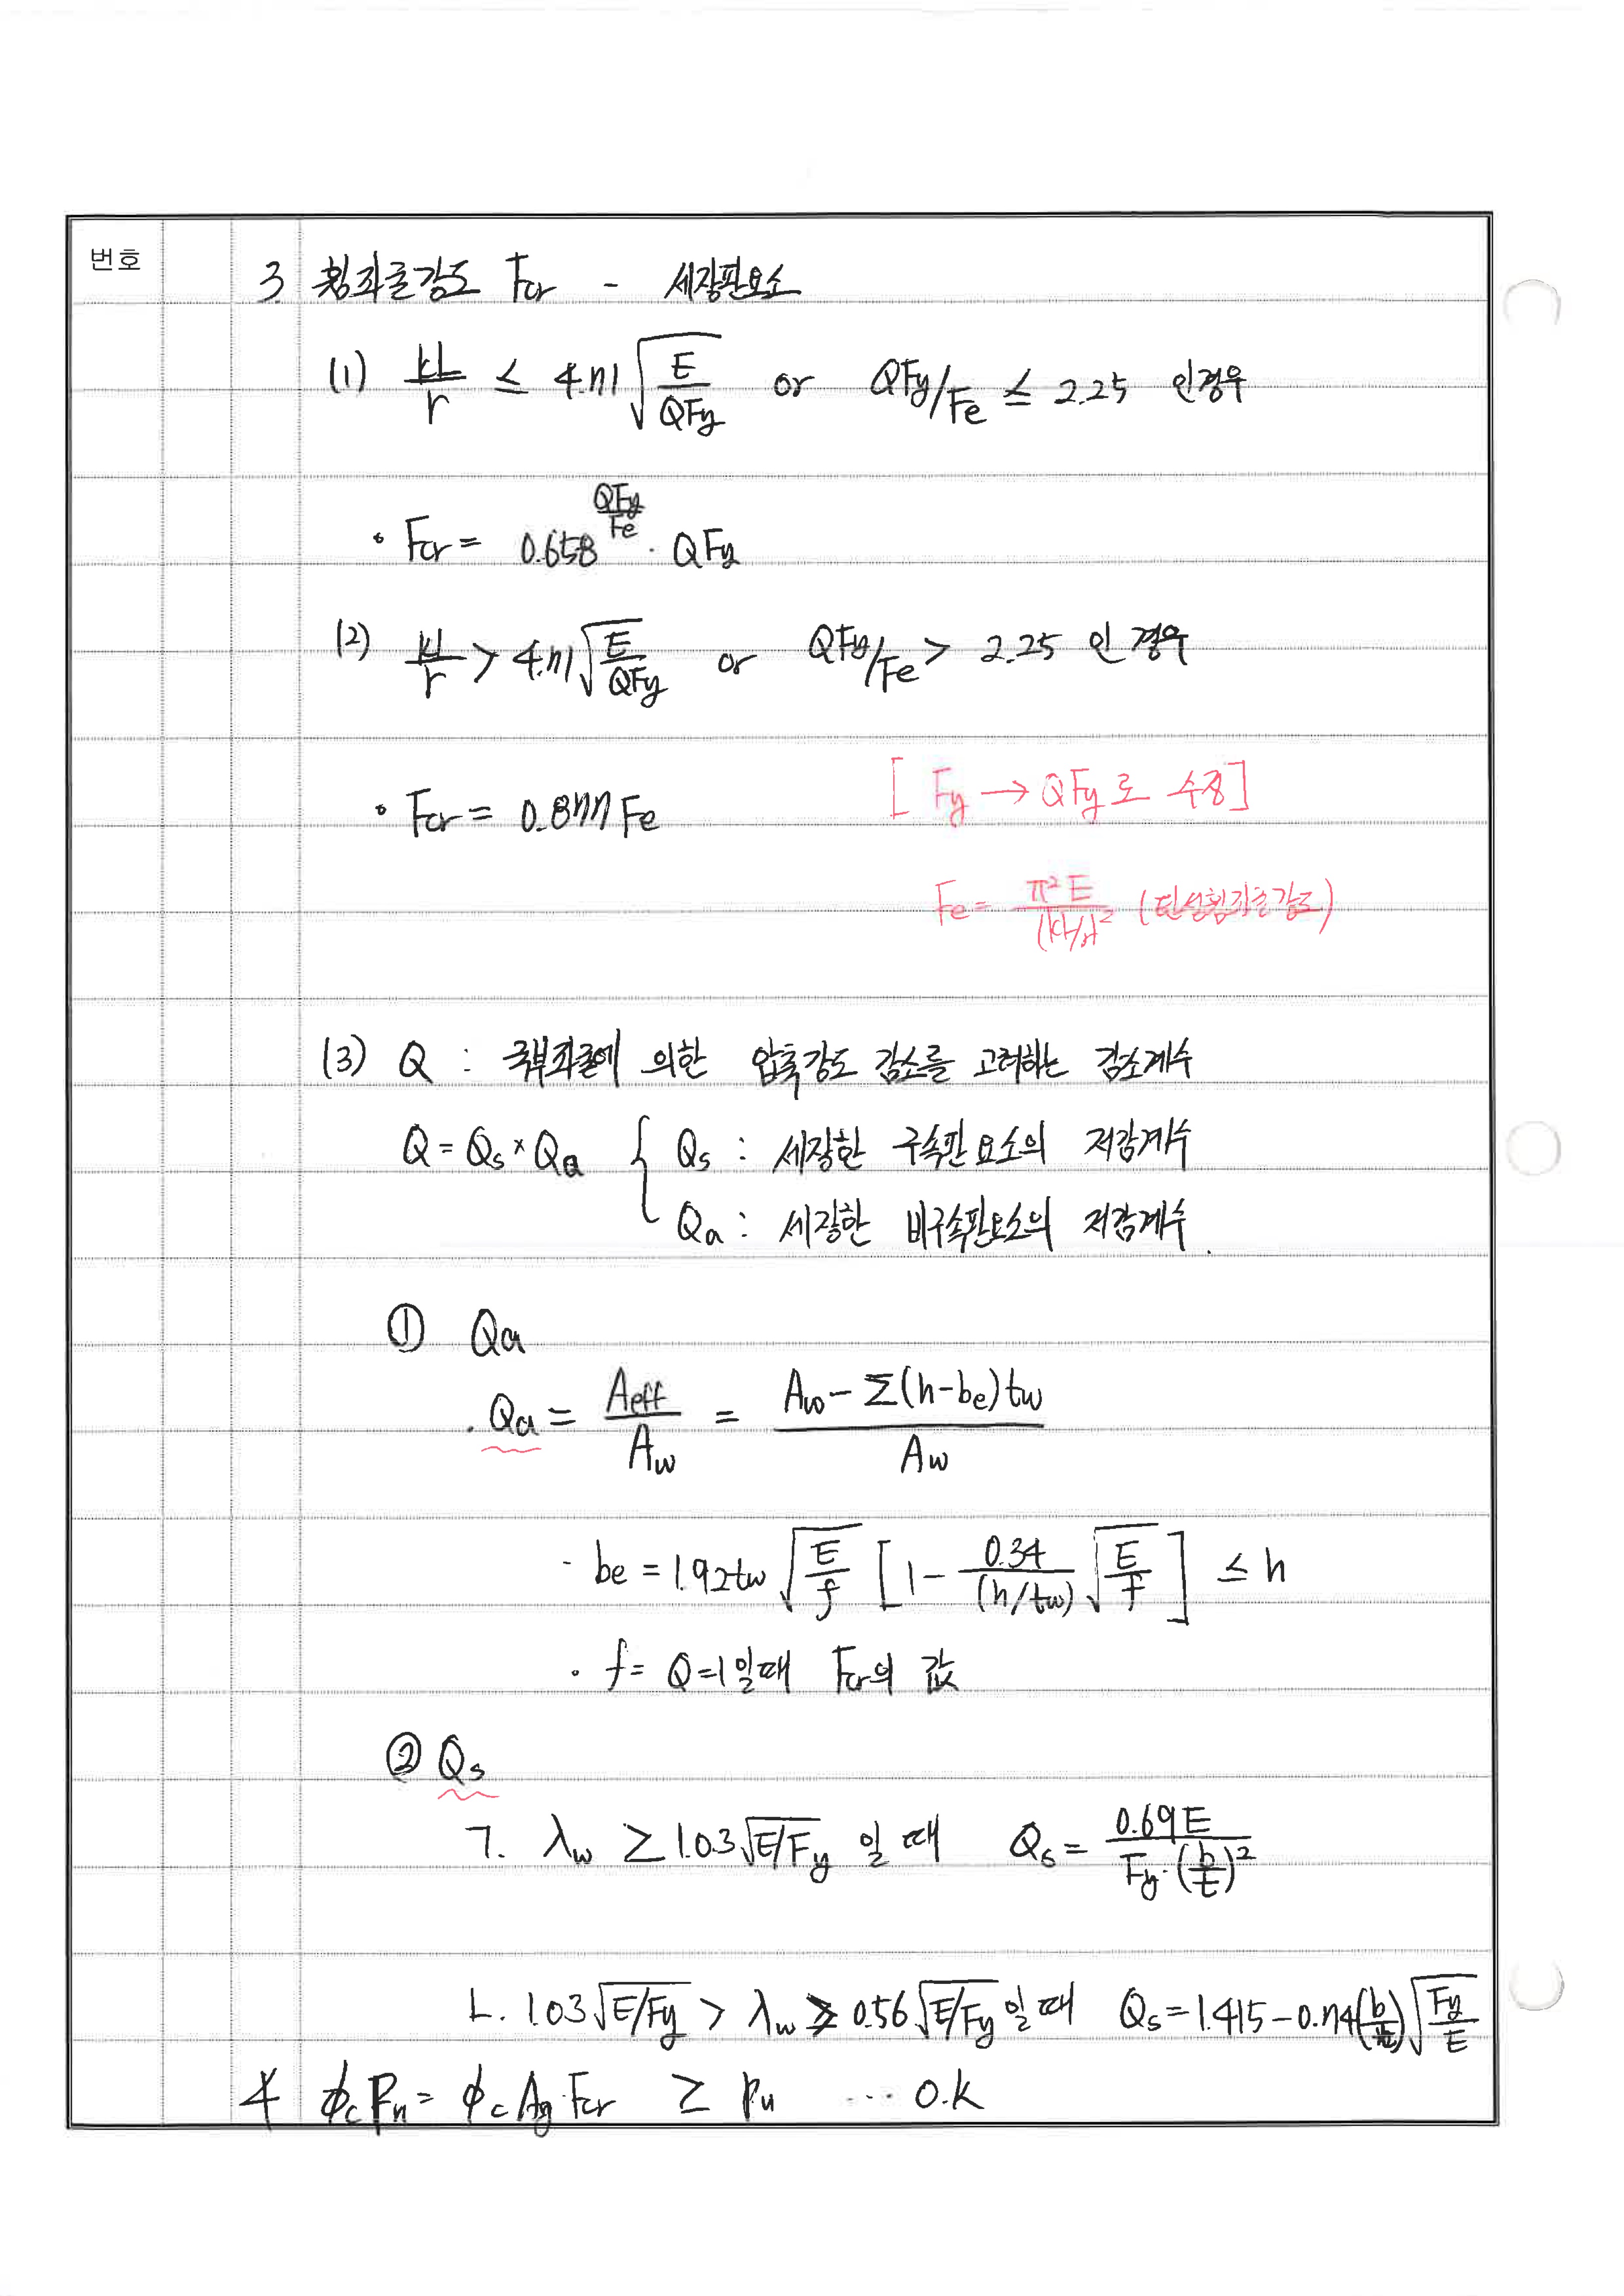 번호
3 휨좌굴강도 Fcr - 세장판요소
(1) kL/r ≤ 4.71√(E/QFy) or QFy/Fe ≤ 2.25 인경우
• Fcr = 0.658^(QFy/Fe) · QFy
(2) kL/r > 4.71√(E/QFy) or QFy/Fe > 2.25 인 경우
• Fcr = 0.877 Fe
[ Fy → QFy 로 수정 ]
Fe = π²E/(kL/r)² (탄성휨좌굴강도)
(3) Q : 국부좌굴에 의한 압축강도 감소를 고려하는 감소계수
Q = Qs × Qa { Qs : 세장한 구속판요소의 저감계수
Qa : 세장한 비구속판요소의 저감계수.
① Qa
· Qa = Aeff/Aw = (Aw - Σ(h-be)tw)/Aw
· be = 1.92tw √(E/f) [1 - 0.34/(h/tw) √(E/f)] ≤ h
· f = Q=1일때 Fcr의 값
② Qs
ㄱ. λw ≥ 1.03√(E/Fy) 일 때 Qs = 0.69E/(Fy·(b/t)²)
ㄴ. 1.03√(E/Fy) > λw ≥ 0.56√(E/Fy) 일 때 Qs = 1.415 - 0.74(b/t)√(Fy/E)
4 ϕcPn = ϕc Ag·Fcr ≥ Pu ··· O.K